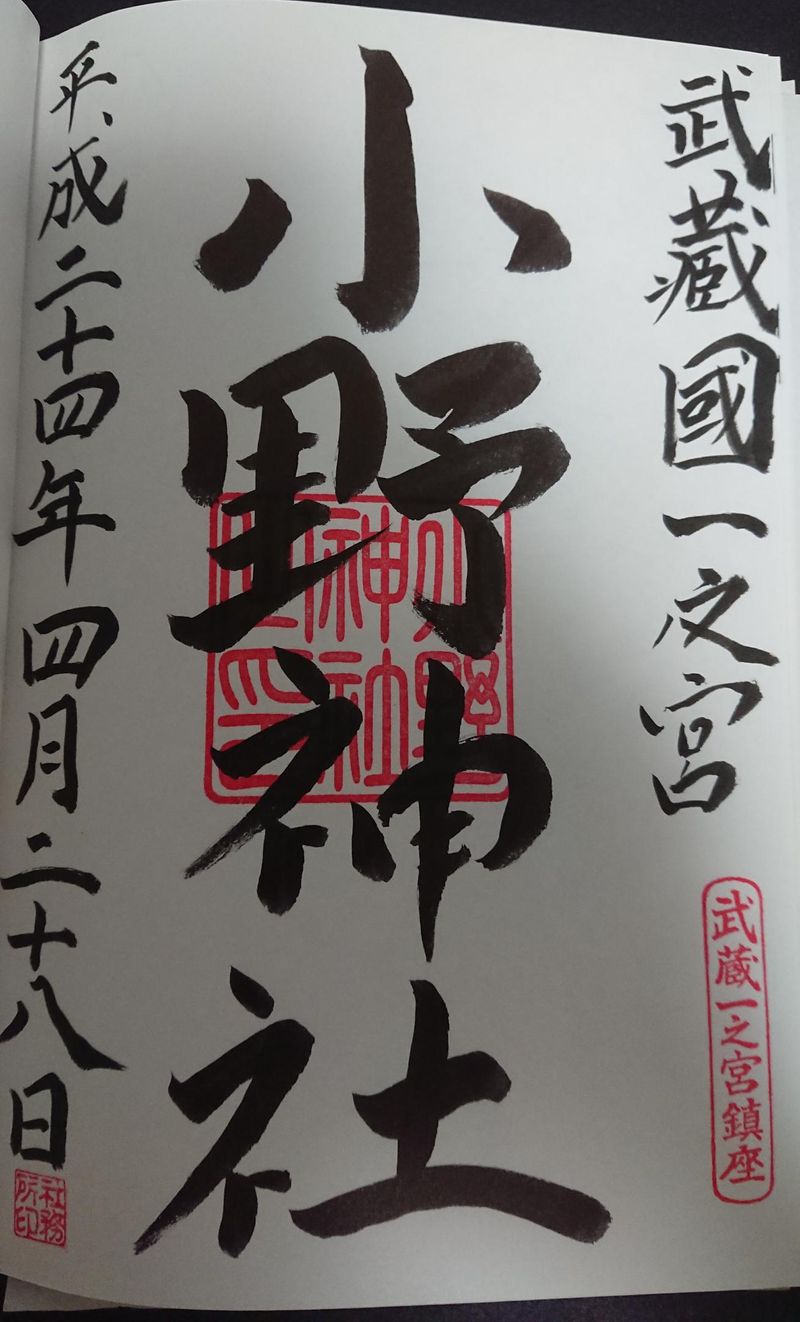 武蔵國一之宮
武蔵一之宮鎮座
小野神社
小野
神社
之印
平成二十四年四月二十八日
社務
所印